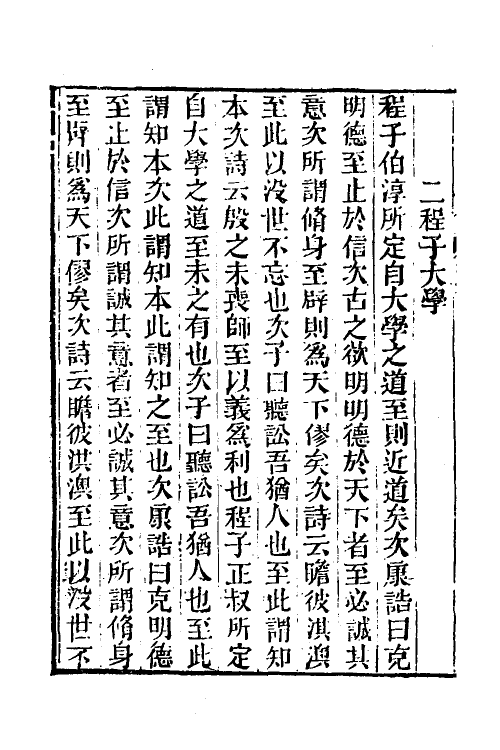 二程子大學
程子伯淳所定自大學之道至則近道矣次康誥曰克
明德至止於信次古之欲明明德於天下者至必誠其
意次所謂脩身至辟則為天下僇矣次詩云瞻彼淇澳
至此以没世不忘也次子曰聽訟吾猶人也至此謂知
本次詩云殷之未喪師至以義為利也程子正叔所定
自大學之道至未之有也次子曰聽訟吾猶人也至此
謂知本次此謂知本此謂知之至也次康誥曰克明德
至止於信次所謂誠其意者至必誠其意次所謂脩身
至辟則為天下僇矣次詩云瞻彼淇澳至此以没世不